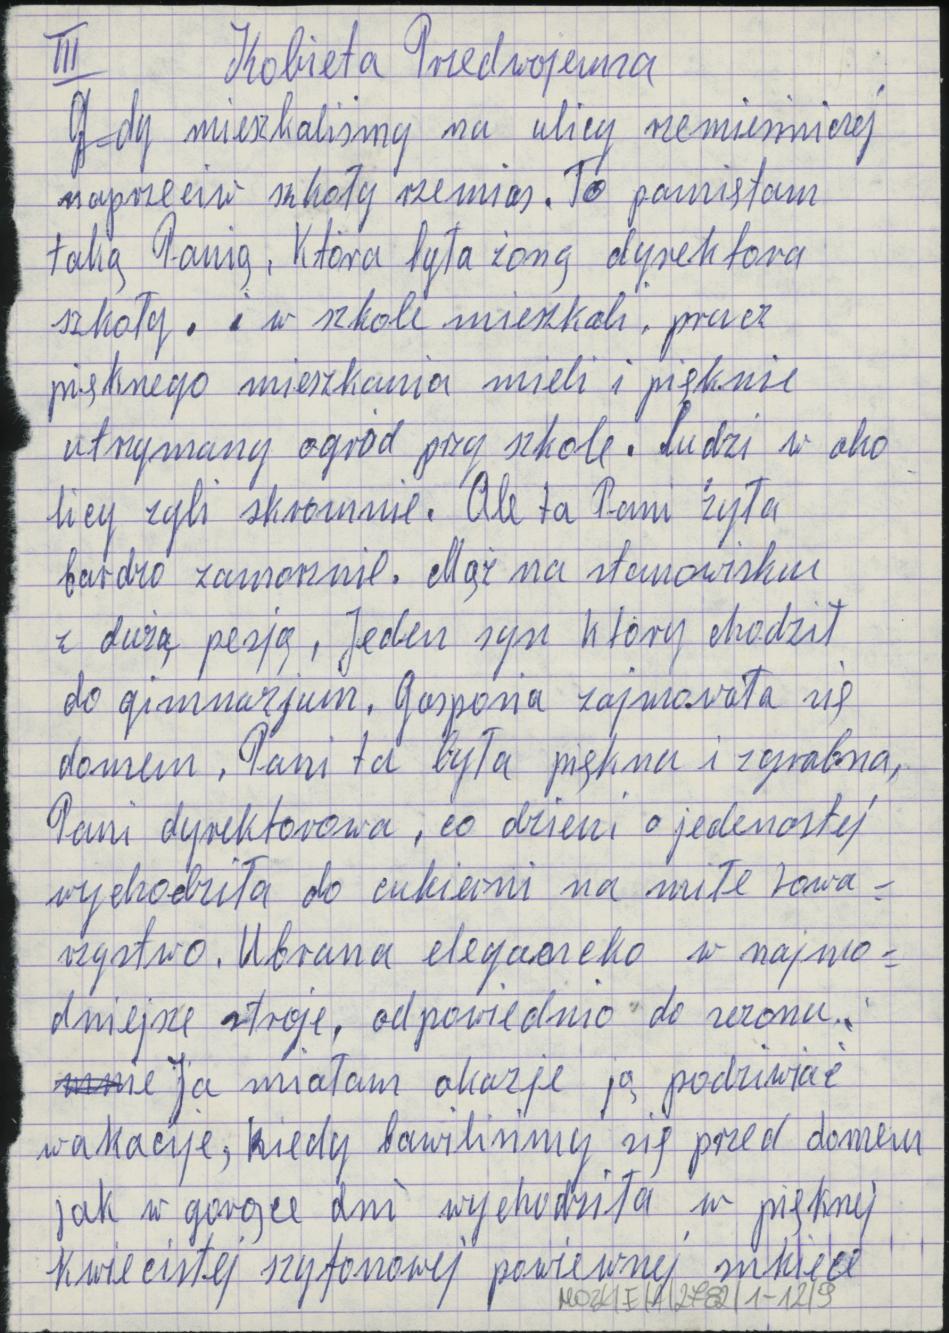 III Kobieta Przedwojenna
Gdy mieszkalismy na ulicy rzemieśniczej
naprzeciw szkoły rzemios. To pamiętam
taką Panią, która była żoną dyrektora
szkoły. i w szkole mieszkali, prucz
pięknego mieszkania mieli i pięknie
utrzymany ogród przy szkole. Ludzi w oko
licy zyli skromnie. Ale ta Pani żyła
bardzo zamoznie. Mąż na stanowisku
z dużą pesją, Jeden syn który chodził
do gimnazjum. Gosposia zajmowała się
domem, Pani ta była piękna i zgrabna,
Pani dyrektorowa, co dzień o jedenastej
wychodziła do cukierni na miłe towa=
rzystwo. Ubrana elegancko w najmo=
dniejsze stroje, odpowiednio do sezonu.
Ja miałam okazje ją podziwiać
wakacije, kiedy bawiliśmy się przed domem
jak w gorące dni wychodziła w pięknej
kwiecistej szyfonowej powiewnej sukięce
MOZK/E/A/2782/1-12/9